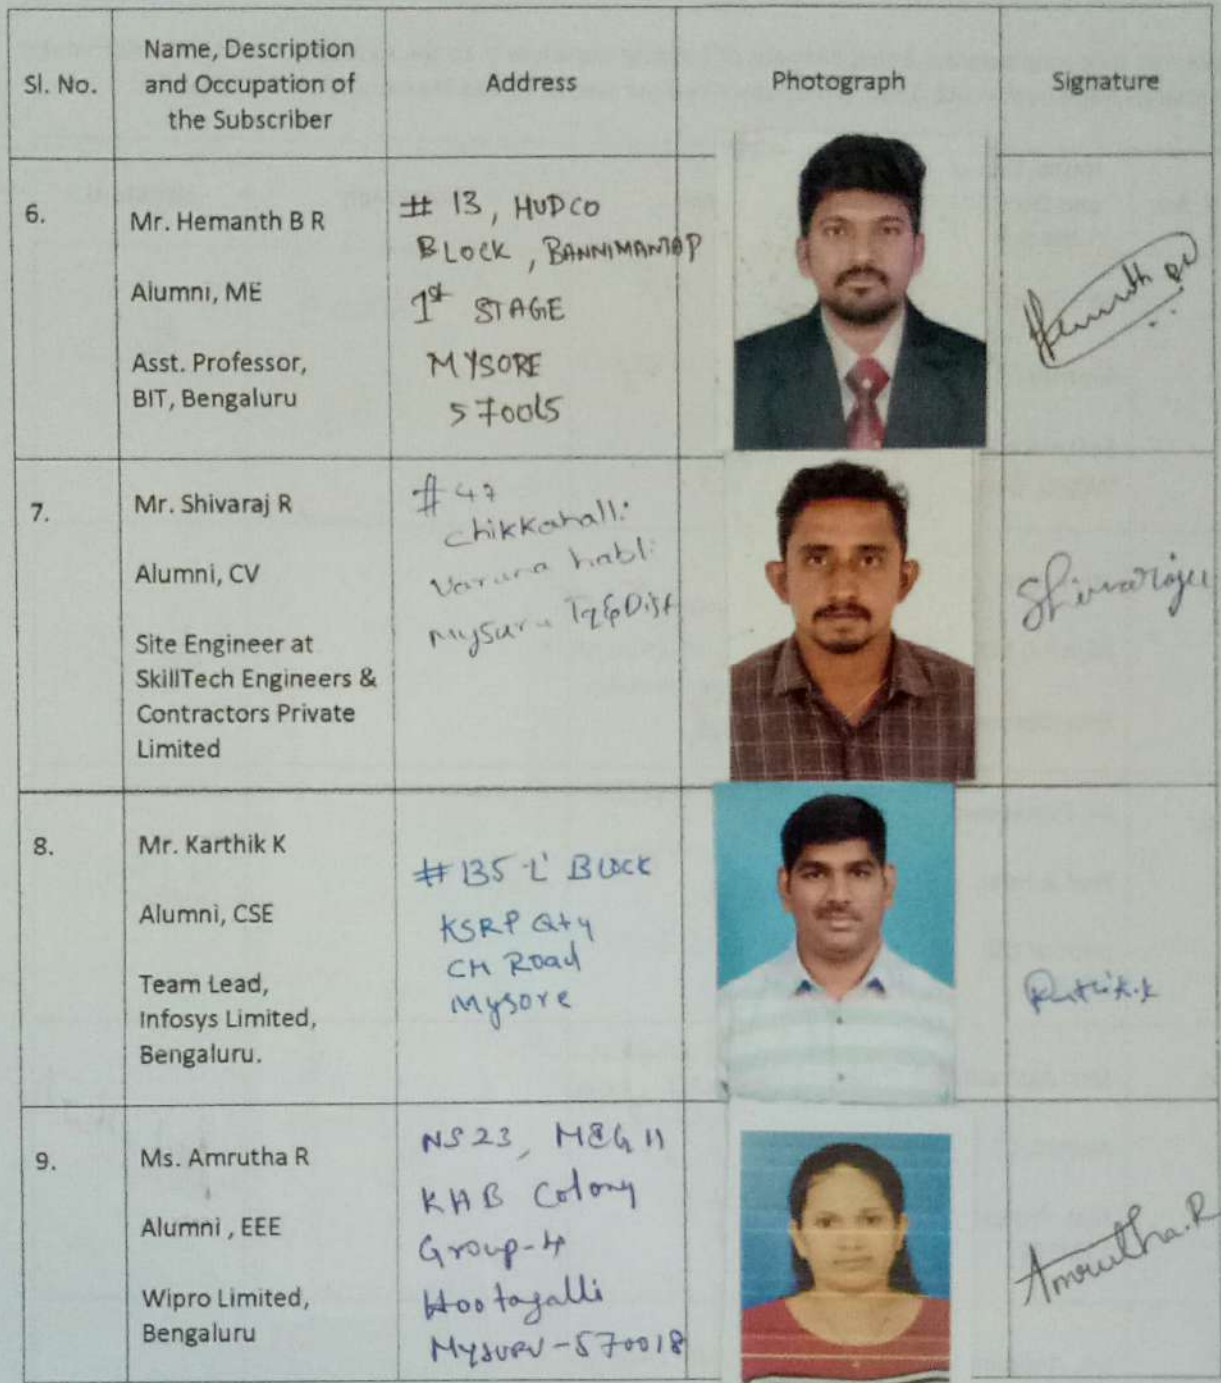 Sl. No.
Name, Description
and Occupation of
the Subscriber
Address
Photograph
Signature
6.
Mr. Hemanth B R
Alumni, ME
Asst. Professor,
BIT, Bengaluru
# 13, HUDCO
BLOCK, BANNIMANTAP
1st STAGE
MYSORE
570015
Hemanth BR
7.
Mr. Shivaraj R
Alumni, CV
Site Engineer at
SkillTech Engineers &
Contractors Private
Limited
# 47
Chikkahalli
Varuna hobli
Mysuru Tq & Dist
Shivaraju
8.
Mr. Karthik K
Alumni, CSE
Team Lead,
Infosys Limited,
Bengaluru.
# 135 'L' BLOCK
KSRP Qty
CH Road
Mysore
Karthik.K
9.
Ms. Amrutha R
Alumni , EEE
Wipro Limited,
Bengaluru
NS 23,
KHB Colony
Group-4
Hootagalli
Mysuru - 570018
Amrutha.R